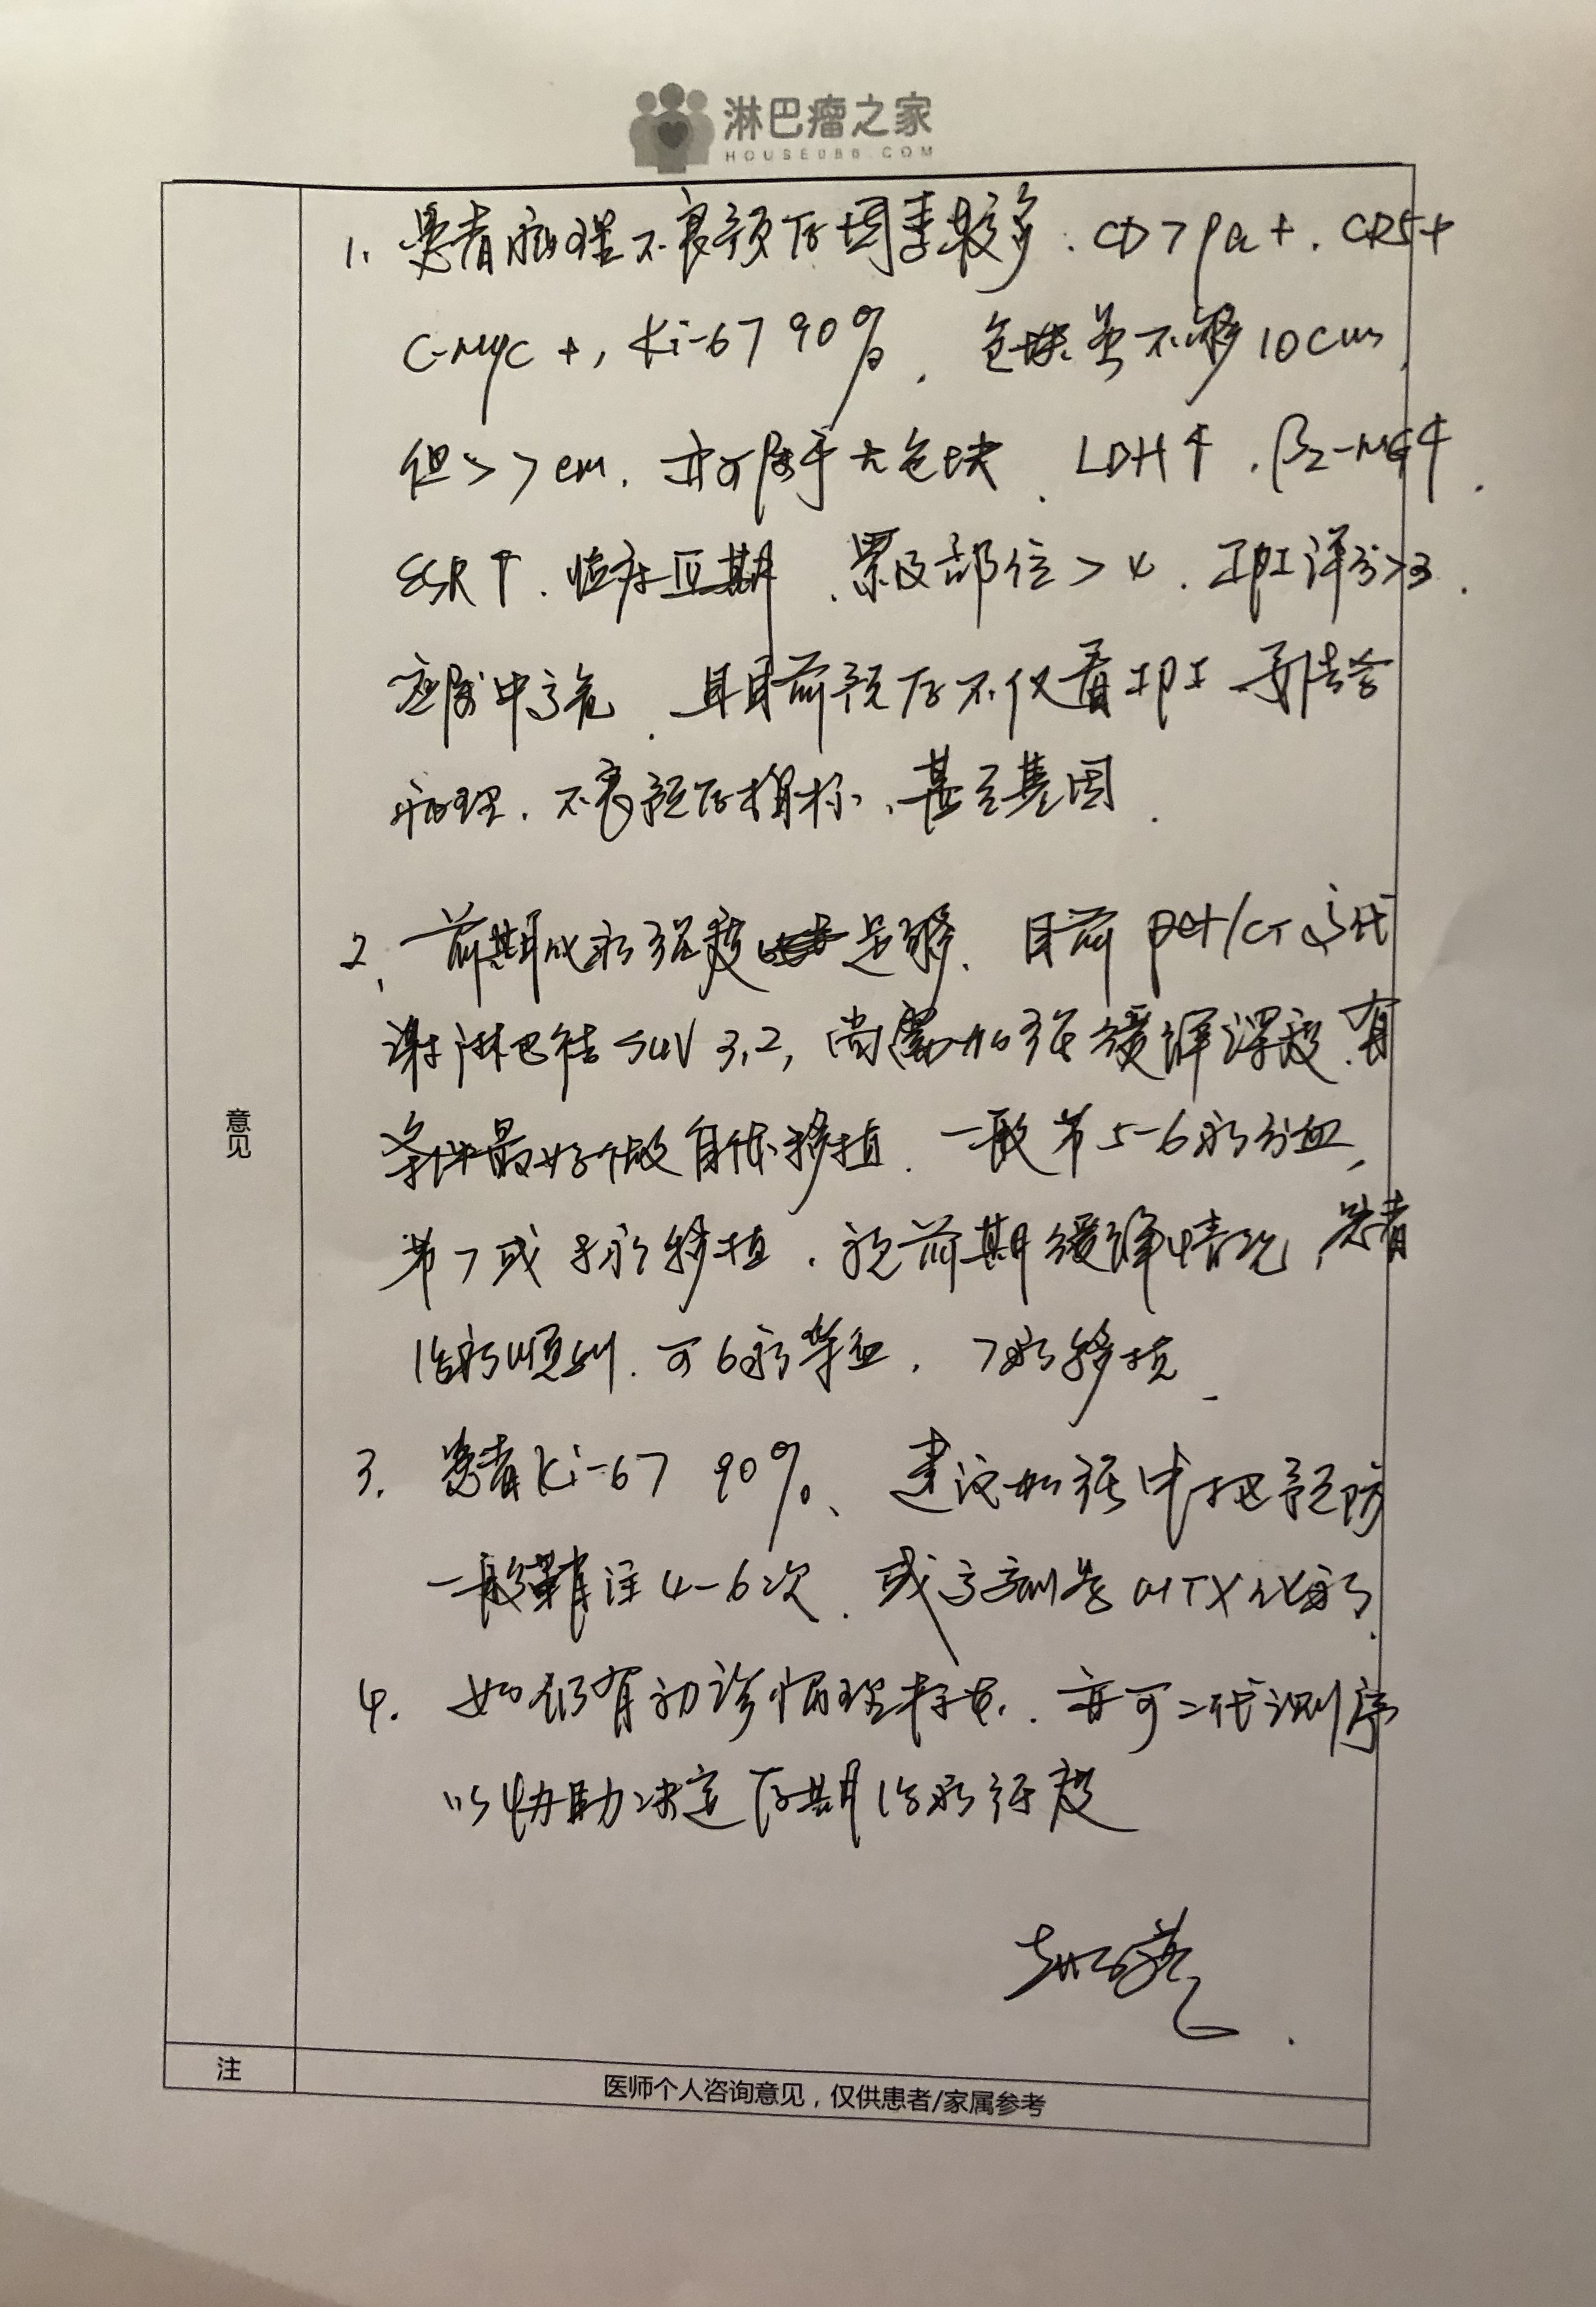 淋巴瘤之家
HOUSE086.COM
1. 患者病理不良预后因素较多. CD79a+. CD5+
C-myc+, Ki-67 90%. 包块虽不够10cm,
但>7cm. 亦可属于大包块. LDH↑. β2-MG↑.
ESR↑. 临床Ⅳ期. 累及部位>4. IPI评分>3.
应属中高危. 且目前预后不仅看IPI. 要结合
病理. 不良预后指标、甚至基因.
2. 前期化疗强度足够. 目前PET/CT高代
谢淋巴结SUV 3.2, 尚需加强缓解深度. 有
条件最好做自体移植. 一般第5-6疗分血,
第7或8疗移植. 视前期缓解情况, 患者
治疗顺利. 可6疗采血. 7疗移植.
3. 患者Ki-67 90%、建议加强中枢预防
一般鞘注4-6次. 或高剂量MTX化疗.
4. 如仍有初诊病理标本. 亦可二代测序
以协助决定后期治疗强度
意见
注
医师个人咨询意见，仅供患者/家属参考